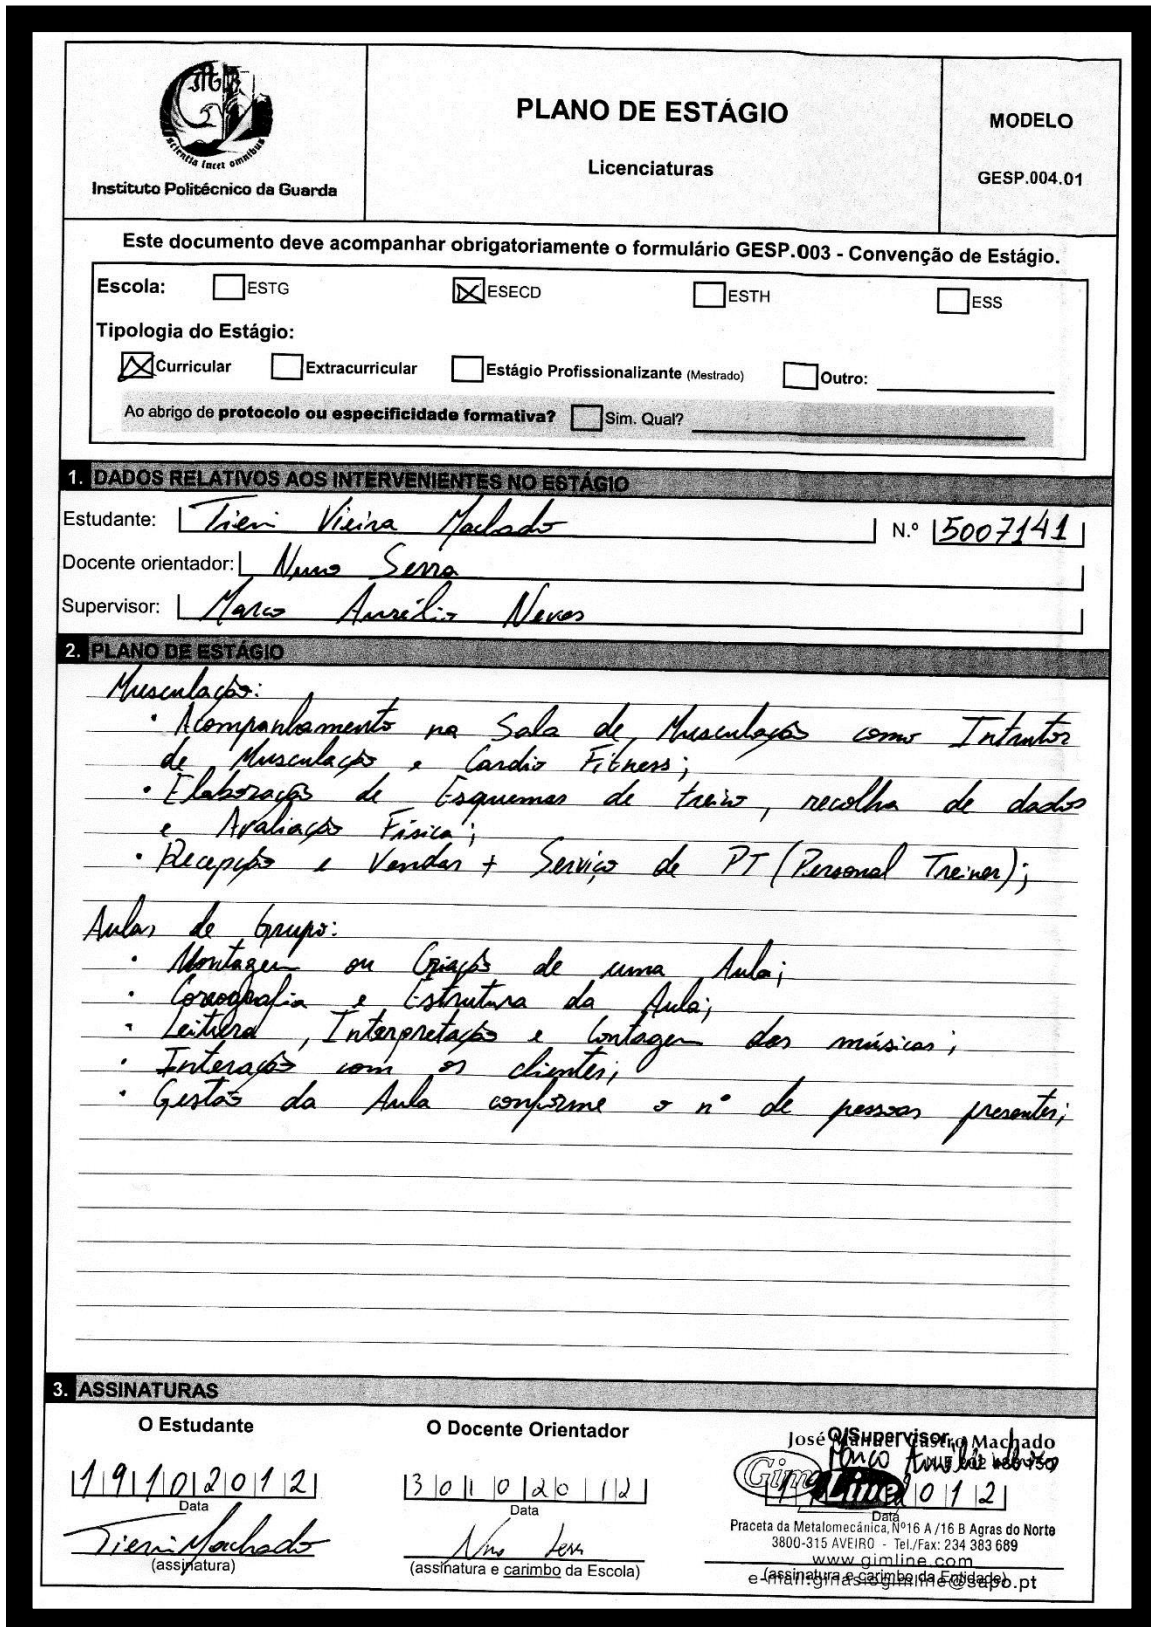 Scientia lucet omnibus
Instituto Politécnico da Guarda
PLANO DE ESTÁGIO
Licenciaturas
MODELO
GESP.004.01
Este documento deve acompanhar obrigatoriamente o formulário GESP.003 - Convenção de Estágio.
Escola: ESTG ESECD ESTH ESS
Tipologia do Estágio:
Curricular Extracurricular Estágio Profissionalizante (Mestrado) Outro:
Ao abrigo de protocolo ou especificidade formativa? Sim. Qual?
1. DADOS RELATIVOS AOS INTERVENIENTES NO ESTÁGIO
Estudante: Tieni Vieira Machado N.º 5007141
Docente orientador: Nuno Serra
Supervisor: Marco Aurélio Neves
2. PLANO DE ESTÁGIO
Musculação:
· Acompanhamento na Sala de Musculação como Intrutor
de Musculação e Cardio Fitness;
· Elaboração de Esquemas de treino, recolha de dados
e Avaliação Física;
· Recepção e Vendas + Serviço de PT (Personal Treiner);
Aulas de Grupo:
· Montagem ou Criação de uma Aula;
· Coreografia e Estrutura da Aula;
· Leitura, Interpretação e Contagem das músicas;
· Interação com os clientes;
· Gestão da Aula conforme o nº de pessoas presentes;
3. ASSINATURAS
O Estudante
19102012
Data
Tieni Machado
(assinatura)
O Docente Orientador
30102012
Data
Nuno Serra
(assinatura e carimbo da Escola)
O Supervisor
José Manuel Castro Machado
Marco Aurélio Neves
Gim Line
012
Data
Praceta da Metalomecânica, Nº16 A /16 B Agras do Norte
3800-315 AVEIRO - Tel./Fax: 234 383 689
www.gimline.com
(assinatura e carimbo da Entidade)
e-mail:ginasiogimline@sapo.pt